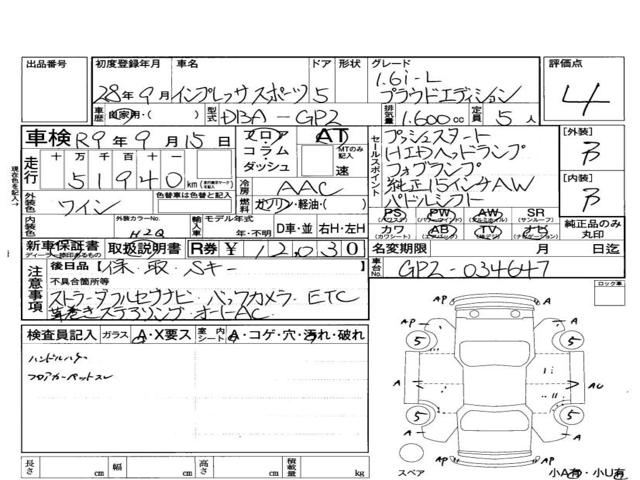 出品番号 初度登録年月 車名 ドア 形状 グレード 評価点
28年9月 インプレッサスポーツ 5 1.6i-L プラウドエディション 4
車歴 自家用・( ) 型式 DBA-GP2 排気量 1.600cc 定員 5人
車検 R9年9月15日 フロア・コラム・ダッシュ AT MTのみ記入 速
セールスポイント プッシュスタート
HIDヘッドランプ
フォグランプ
純正15インチAW
パドルシフト
[外装] B
[内装] B
現在色を記入→
走行 十万千百十一 51940km
冷房 AAC
外装色 ワイン 色替車は色替前と記入 燃料 ガソリン・軽油・( )
内装色 外装カラーNo. H2Q 輸入車 モデル年式 年・不明 D車・並 右H・左H
PS (パワステ) PW (パワーウィンド) AW (アルミホイル) SR (サンルーフ) 純正品のみ丸印
カワ (カワシート) AB (エアバッグ) TV (テレビ) ナビ (ナビゲーション)
新車保証書 取扱説明書 R券 ¥12,030
名変期限 月 日迄
車台No. GP2-034647
注意事項 後日品 保、取、Sキー
不具合箇所等
ストラーダフルセグナビ・バックカメラ・ETC
革巻きステアリング・オートAC
ロック車
検査員記入 ガラス A・X要ス 室内シート A・コゲ・穴・汚れ・破れ
ハンドルハゲ
フロアカーペットスレ
AP AP
5 5
A A AU
5 5
AP A AP
長さ cm 幅 cm 高さ cm 積載量 kg
スペア 小A有・小U有